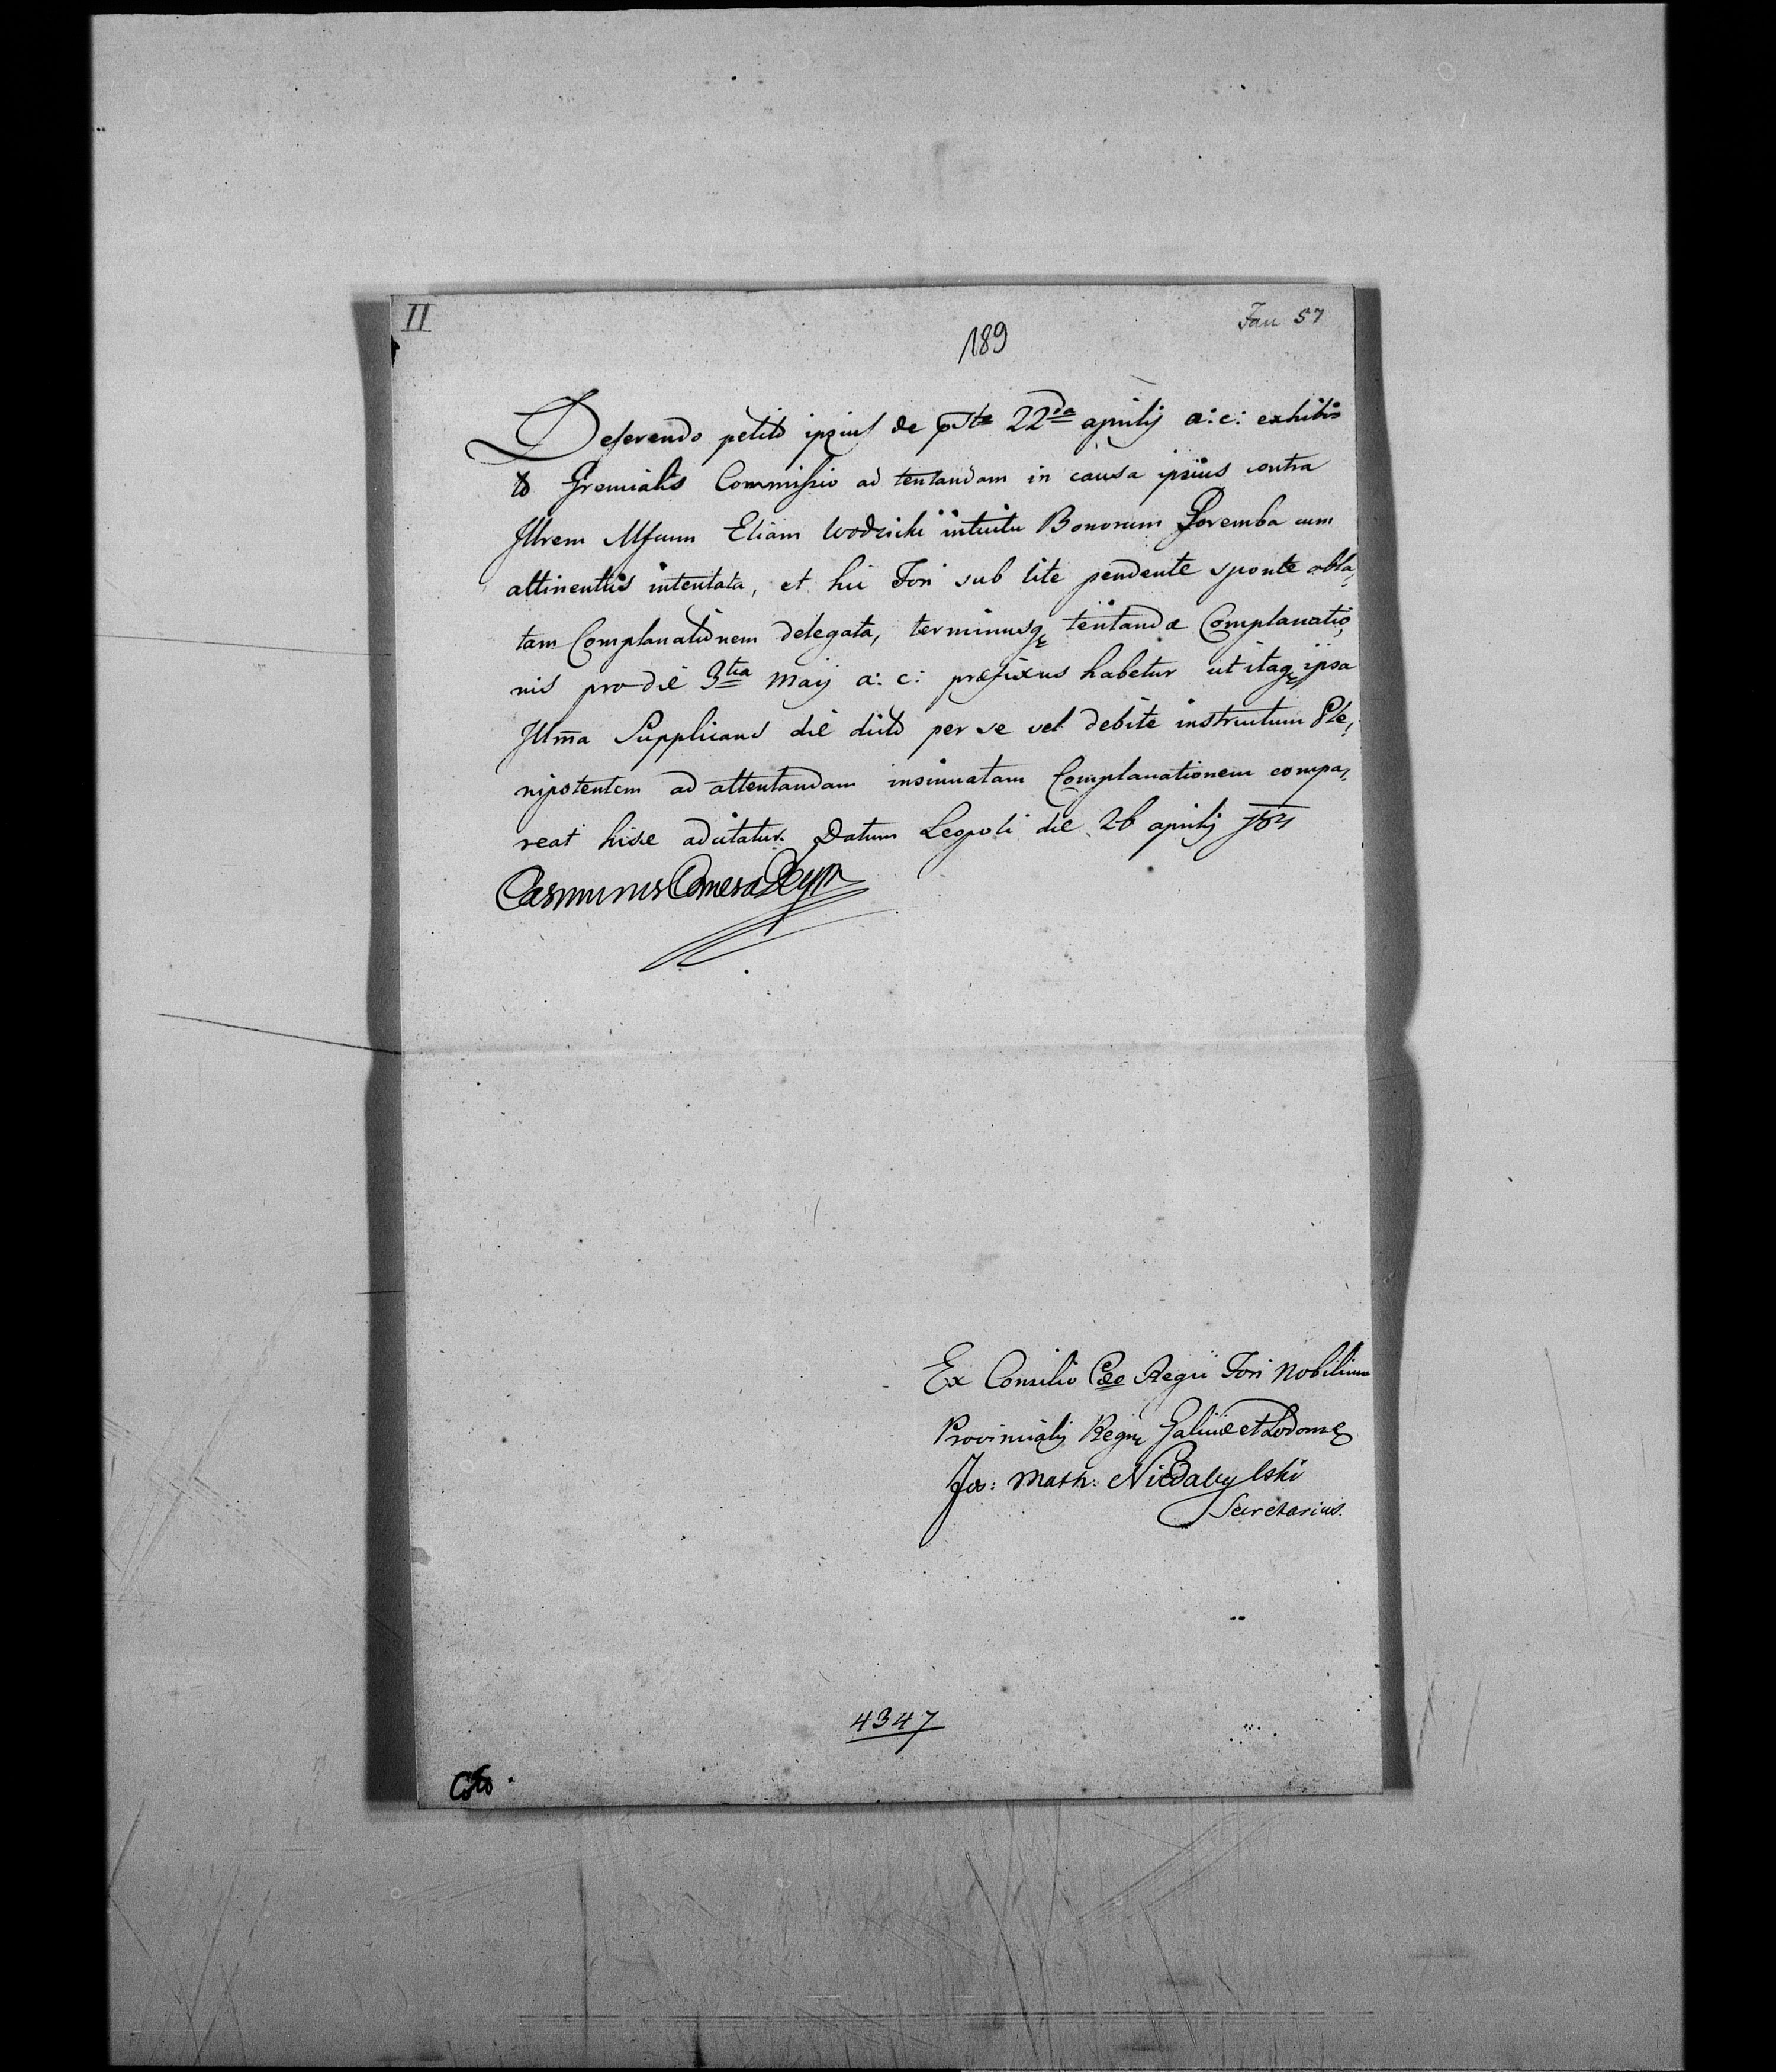 II
Fan 57
189
Deferendo petito ipsius de psta 22da aprilij a: c: exhibi⸗
to Gremialis Commissio ad tentandam in causa ipsius contra
Illrem Mfcum Eliam Wodzicki intuitu Bonorum Poremba cum
attinentiis intentata, et hic Fori sub lite pendente sponte obla⸗
tam Complanationem delegata, terminusqe tentandæ Complanatio⸗
nis pro die 3tia Maij a: c: præfixus habetur ut itaqe ipsa
Illma Supplicans die dicto per se vel debite instructum Ple⸗
nipotentem ad attentandam insinuatam Complanationem compa⸗
reat hisce adcitatur. Datum Leopoli die 26 aprilij 784
Casimirus Comes a Reyn
Ex Consilio Cæo Regii Fori Nobilium
Provincialis Regnr Galiciæ et Lodome
Jos: Math: Niedabylski
Secretarius.
4347